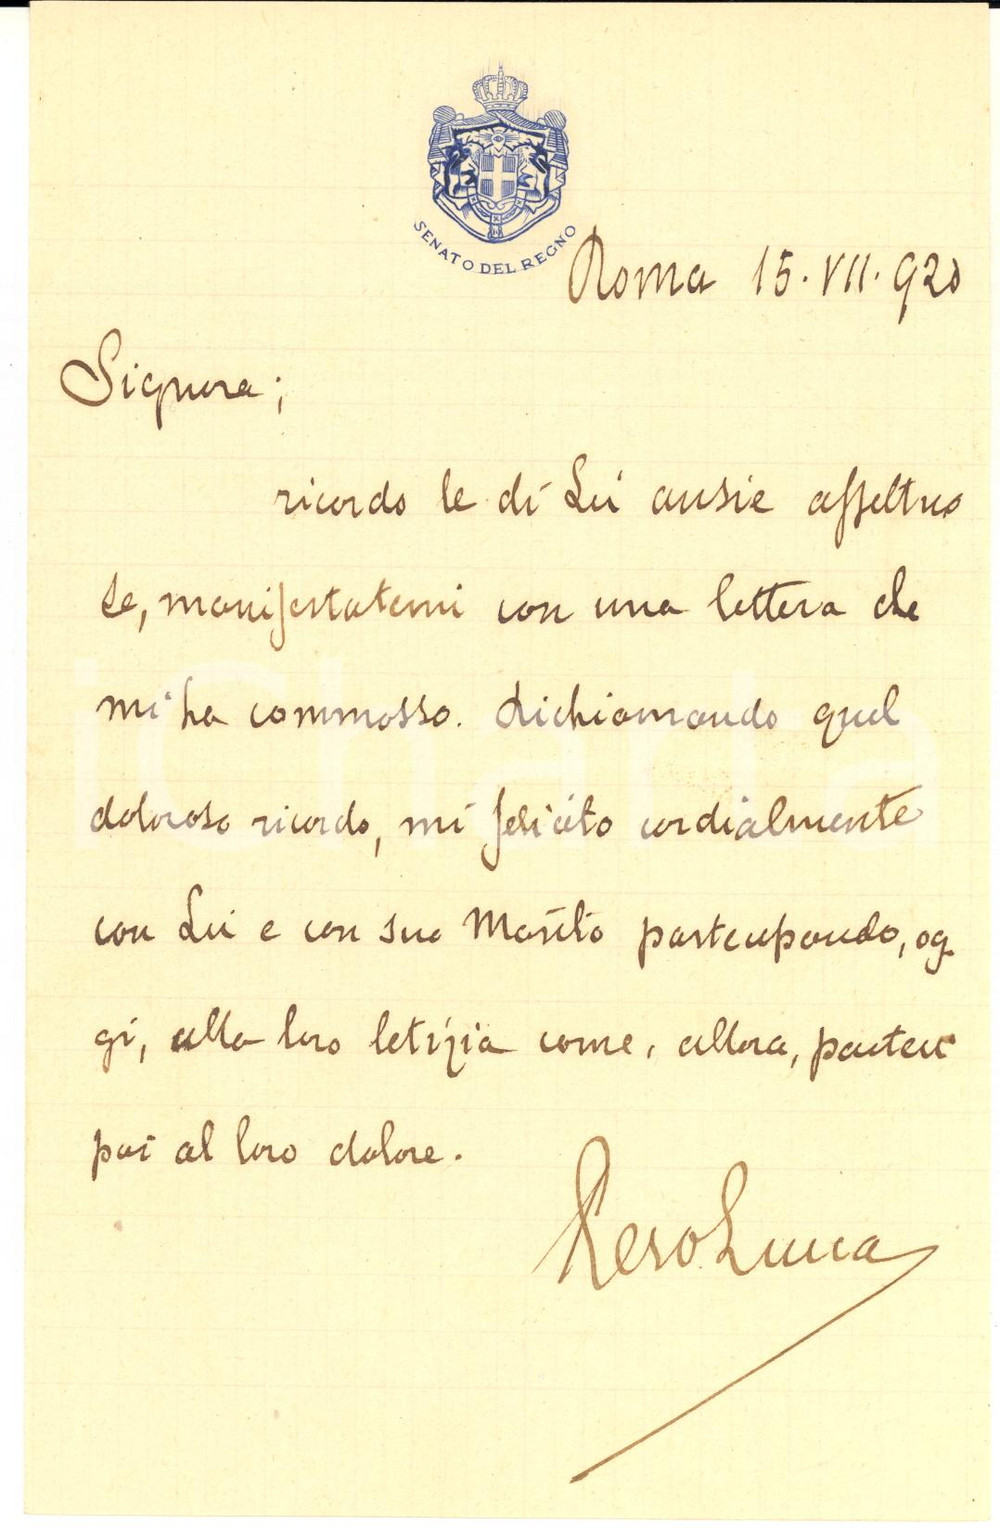 SENATO DEL REGNO
Roma 15.VII.920
Signora;
ricordo le di Lei ansie affettuo
se, manifestatemi con una lettera che
mi ha commosso. Richiamando quel
doloroso ricordo, mi felicito cordialmente
con Lei e con suo Marito partecipando, og
gi, alla loro letizia come, allora, parteci
pai al loro dolore.
Pero Luca
iCharta